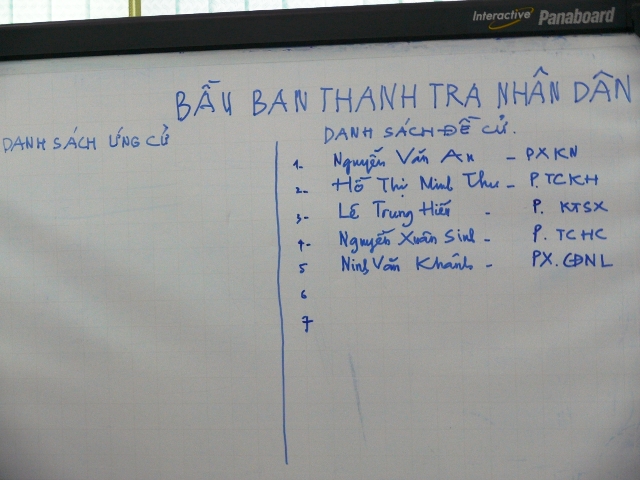 Interactive Panaboard
BẦU BAN THANH TRA NHÂN DÂN
DANH SÁCH ỨNG CỬ
DANH SÁCH ĐỀ CỬ.
1- Nguyễn Văn An - PXKN
2- Hồ Thị Minh Thu - P.TCKH
3- Lê Trung Hiếu - P. KTSX
4- Nguyễn Xuân Sinh - P. TCHC
5 Ninh Văn Khánh - PX.CĐNL
6
7